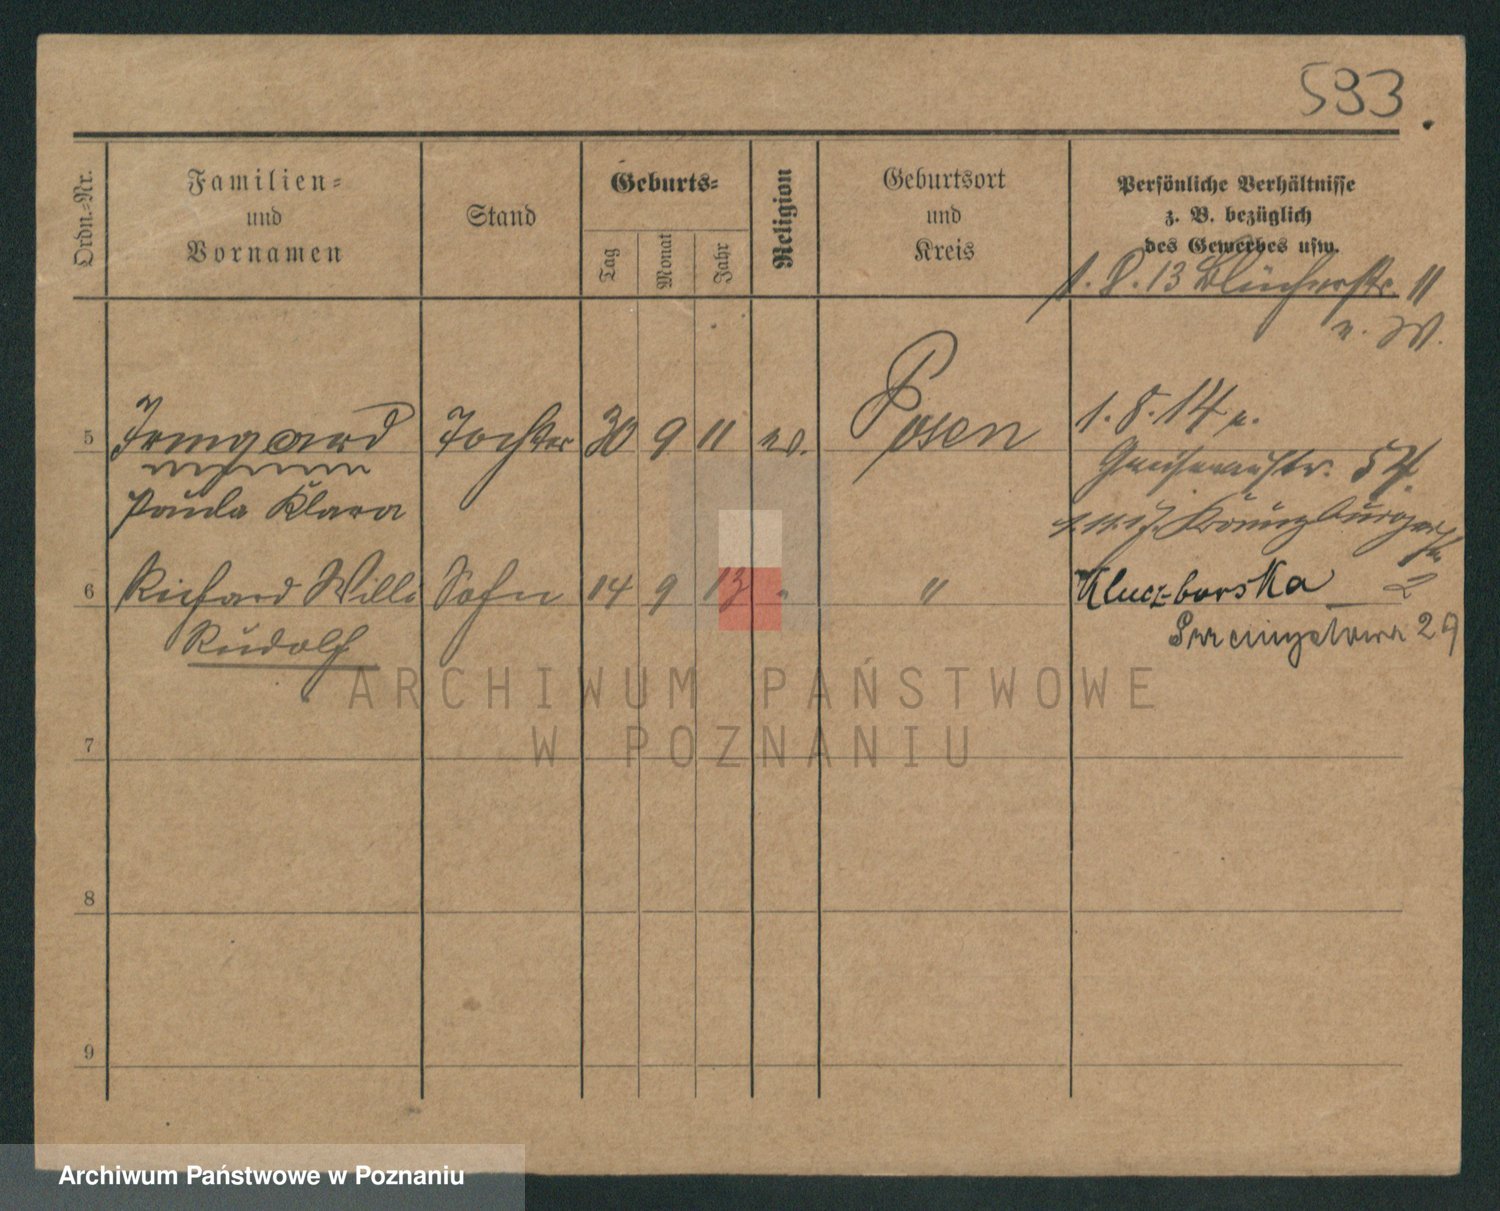 593.
Ordn.-Nr.
Familien-
und
Vornamen
Stand
Geburts-
Tag
Monat
Jahr
Religion
Geburtsort
und
Kreis
Persönliche Verhältnisse
z. B. bezüglich
des Gewerbes usw.
1. 8. 13 Blücherstr. 11
5 Irmgard Tochter 30 9 11 ev. Posen 1. 8. 14
Paula Klara
Gneisenaustr. 54.
Kreuzburger
str. 2
6 Richard Willi Sohn 14 9 13 " "
Rudolf
Kluczborska
29
7
8
9
ARCHIWUM PAŃSTWOWE
W POZNANIU
Archiwum Państwowe w Poznaniu